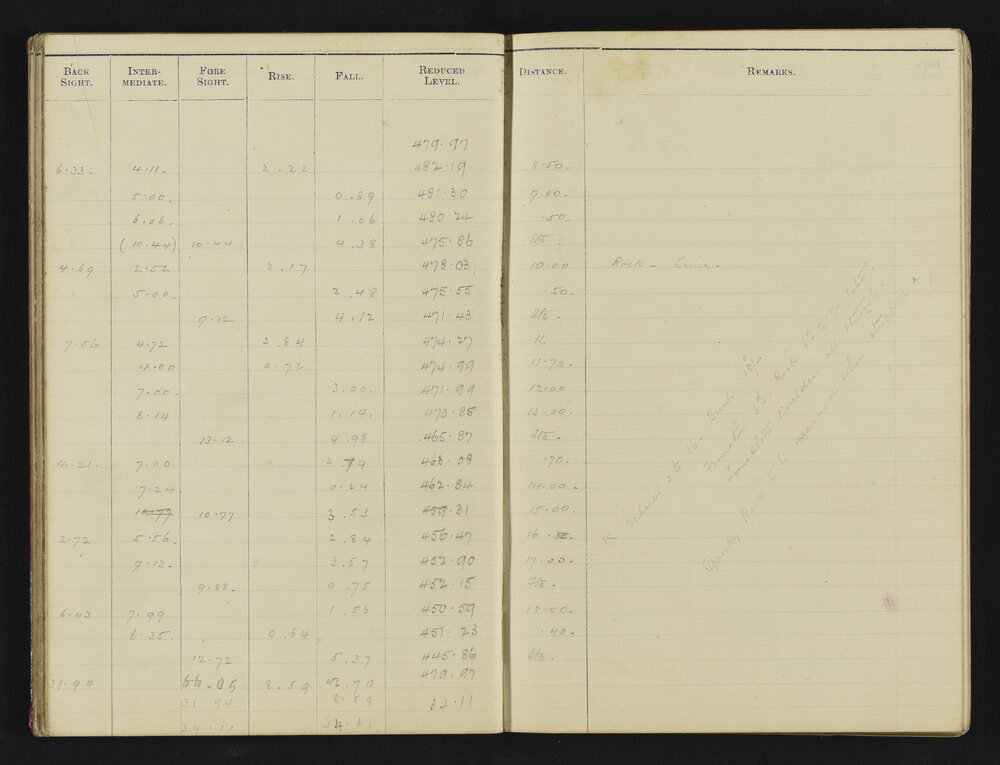 BACK SIGHT. INTER-MEDIATE. FORE SIGHT. RISE. FALL. REDUCED LEVEL. DISTANCE. REMARKS.
479.97
6.33. 4.11. 2.22 482.19 8.50.
5.00. 0.89 481.30 9.00.
6.06. 1.06 480.24 .50.
(10.44) 10.44 4.38 475.86 Sta.
4.69 2.52 2.17 478.03 10.00 Rock - Lime -
5.00. 2.48 475.55 50.
9.12 4.12 471.43 Sta.
7.56 4.72 2.84 474.27 11.
4.00 0.72 474.99 11.70.
7.00. 3.00. 471.99 12.00
8.14 1.14. 470.85 13.00.
13.12 4.98 465.87 Sta.
4.21. 7.00 2.79 463.08 .70.
7.24 0.24 462.84 14.00.
10.77 10.77 3.53 459.31 15.00.
2.72 5.56. 2.84 456.47 16.
9.13. 3.57 452.90 17.00.
9.88. 0.75 452.15 Sta.
6.43 7.99 1.56 450.59 18.00.
6.35. 0.64 451.23 .40.
12.72 5.37 445.86 Sta.
479.97
31.94 66.05 8.59 42.70
31 94 8.59 34.11
34.11 34.11
Values 0 to 16. Bench
Formation Rock
Limestone Boulders all through
Rock to be measured when stripped